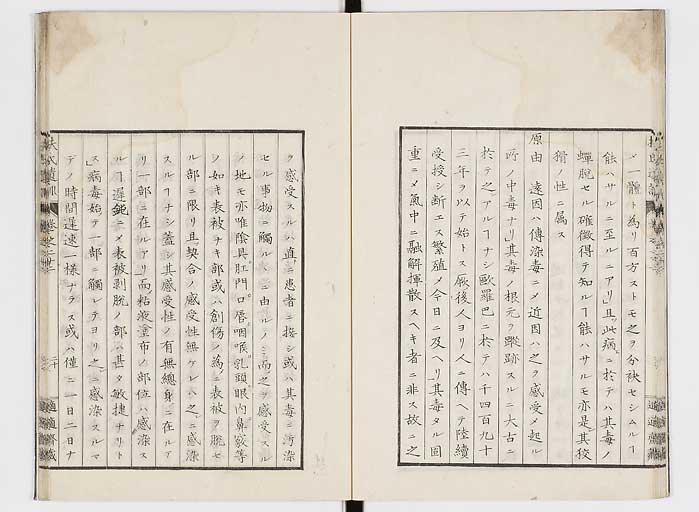 メ一體ト為リ百方ストモ之ヲ分袂セシムルヿ
能ハサルニ至ルニアリ且此病ニ於テハ其毒ノ
蟬脱セル確徴得テ知ルヿ能ハサルモ亦是其狡
猾ノ性ニ属ス
原由 遠因ハ傳染毒ニメ近因ハ之ヲ感受メ起ル
所ノ中毒ナリ其毒ノ根元ヲ蹤跡スルニ大古ニ
於テ之アルヿナシ歐羅巴ニ於テハ千四百九十
三年ヲ以テ始トス厥後人ヨリ人ニ傳ヘテ陸續
受授シ断エス繁殖メ今日ニ及ヘリ其毒タル固
重ニメ氣中ニ融解揮散スヘキ者ニ非ス故ニ之
ヲ感受スルハ直ニ患者ニ接シ或ハ其毒ニ汚染
セル事物ニ觸ルヽニ由ルノミ而之ヲ感受スル
ノ地モ亦唯陰具肛門口唇咽喉乳頭眼内鼻竅等
ノ如キ表被ナキ部或ハ創傷ノ為ニ表被ヲ脱セ
ル部ニ限リ且契合ノ感受性無ケレハ之ニ感染
スルヿナシ蓋シ其感受性ノ有無總身ニ在ルアリ
一部ニ在ルアリ而粘液塗布ノ部位ハ感染ス
ルヿ遲鈍ニメ表被剥脱ノ部ハ甚タ敏捷ナリト
ス病毒始テ一部ニ觸レテヨリ之ニ感染スルマ
テノ時間遲速一様ナラス或ハ僅ニ一日二日ナ